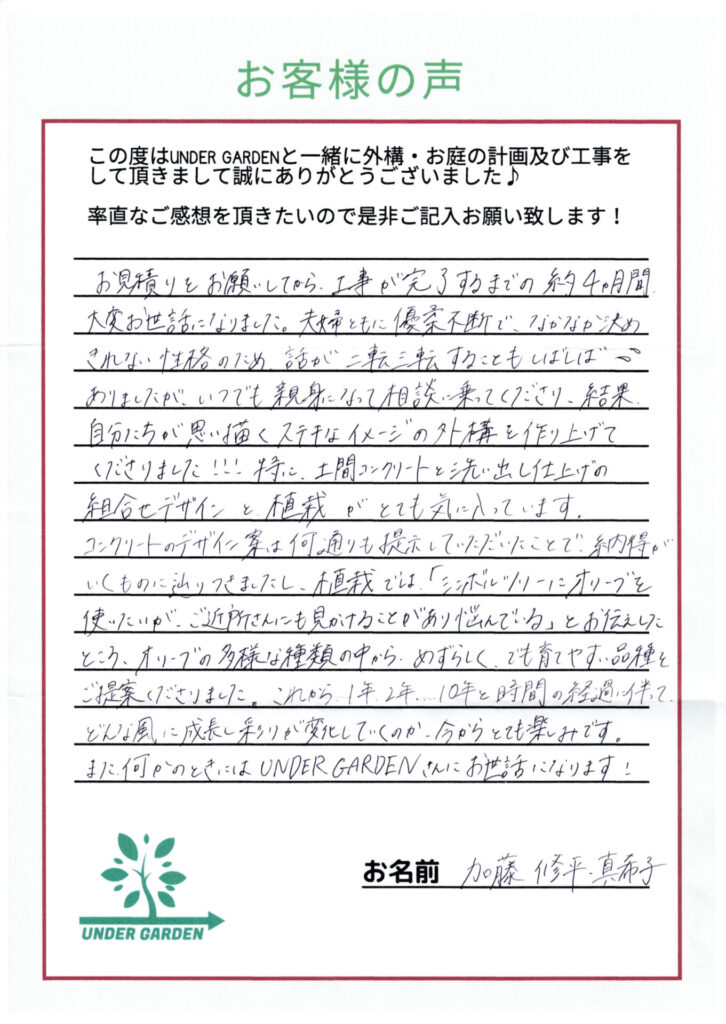 お客様の声
この度はUNDER GARDENと一緒に外構・お庭の計画及び工事を
して頂きまして誠にありがとうございました♪
率直なご感想を頂きたいので是非ご記入お願い致します！
お見積りをお願いしてから、工事が完了するまでの約4ヵ月間、
大変お世話になりました。夫婦ともに優柔不断で、なかなか決め
きれない性格のため、話が二転三転することもしばしば
ありましたが、いつでも親身になって相談に乗ってくださり、結果、
自分たちが思い描くステキなイメージの外構を作り上げて
くださりました!!! 特に、土間コンクリートと洗い出し仕上げの
組合せデザインと、植栽がとても気に入っています。
コンクリートのデザイン案は何通りも提示していただいたことで、納得が
いくものに辿りつきましたし、植栽では、「シンボルツリーにオリーブを
使いたいが、ご近所さんにも見かけることがあり悩んでいる」とお伝えした
ところ、オリーブの多様な種類の中から、めずらしく、でも育てやすい品種を
ご提案くださりました。これから、1年、2年…、10年と時間の経過に伴って、
どんな風に成長し彩りが変化していくのか、今からとても楽しみです。
また何かのときにはUNDER GARDENさんにお世話になります！
お名前 加藤 修平・真希子
UNDER GARDEN